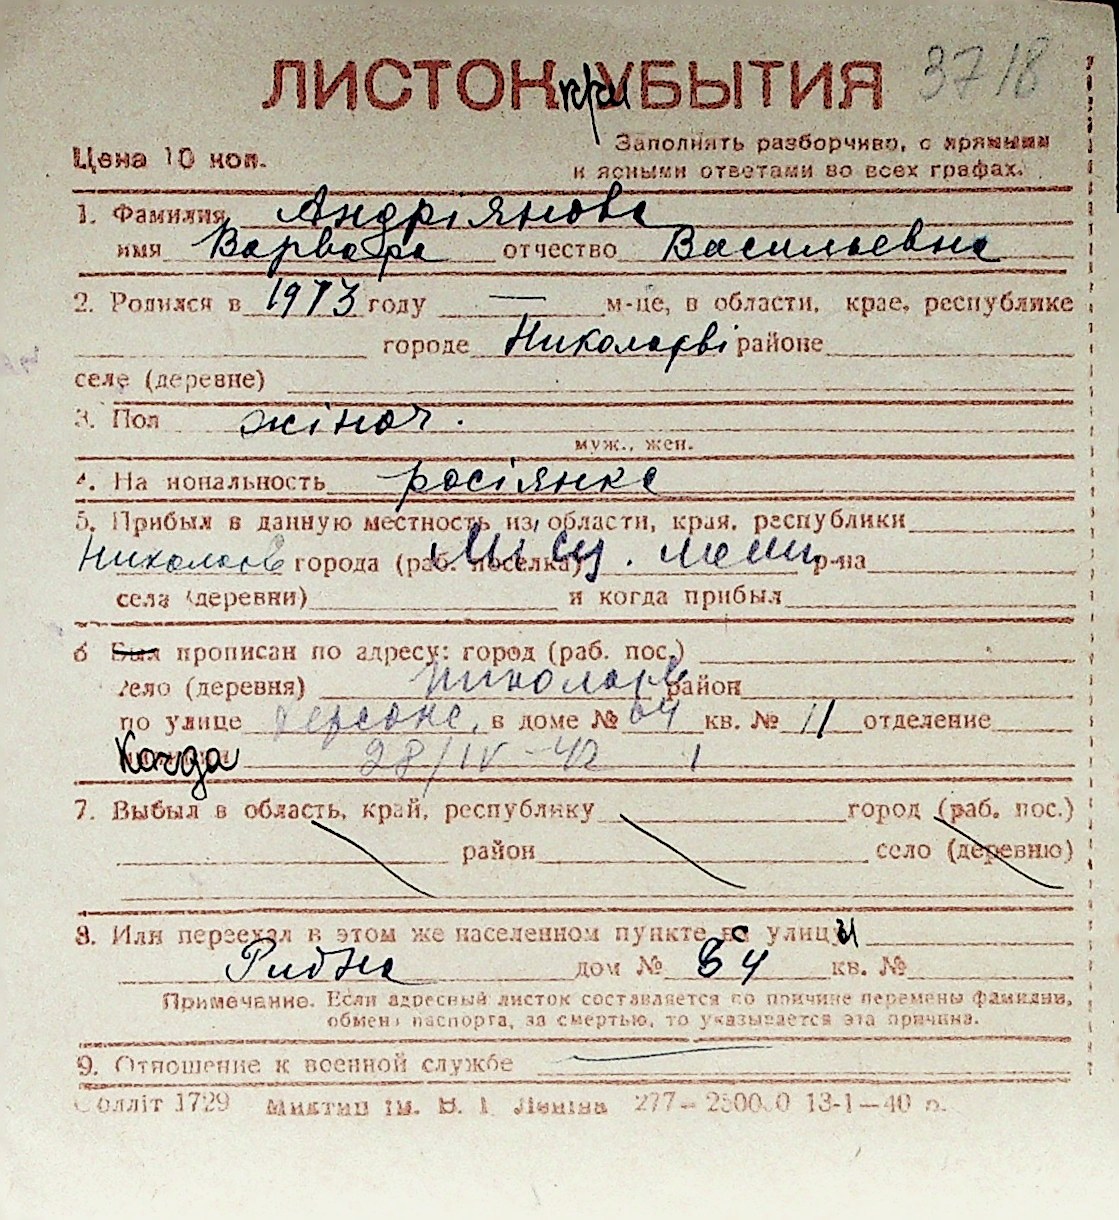 ЛИСТОК при УБЫТИЯ 3718
Цена 10 коп.
Заполнять разборчиво, с прямыми
и ясными ответами во всех графах.
1. Фамилия Андріянова
имя Варвара отчество Васильевна
2. Родился в 1913 году — м-це, в области, крае, республике
городе Николаєві районе
селе (деревне)
3. Пол жіноч.
муж., жен.
4. На иональность росіянка
5. Прибыл в данную местность из области, края, республики
Николаїв города (раб. поселка) Місц. меш. р-на
села (деревни) и когда прибыл
6 Был прописан по адресу: город (раб. пос.)
село (деревня) Николаєв район
по улице Херсонс. в доме № 64 кв. № 11 отделение
Когда 28/IV-42 1
7. Выбыл в область, край, республику город (раб. пос.)
район село (деревню)
8. Или переехал в этом же населенном пункте с улицы
Рибна дом № 84 кв. №
Примечание. Если адресный листок составляется по причине перемены фамилии,
обмена паспорта, за смертью, то указывается эта причина.
9. Отношение к военной службе
Облліт 1729 Миктип ім. В. І. Леніна 277—250000 13-1—40 р.